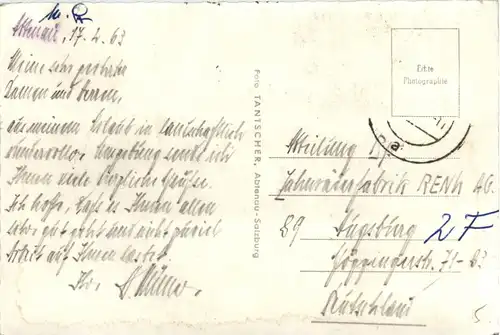 Abtenau, 17.2.63
Meine sehr geehrten
Damen und Herren,
aus meinem Urlaub in landschaftlich
wundervoller Umgebung sende ich
Ihnen viele herzliche Grüße.
Ich hoffe, daß es Ihnen allen
sehr gut geht und nicht zuviel
Arbeit auf Ihnen lastet.
Ihr
Foto TANTSCHER, Abtenau-Salzburg
Echte
Photographie
Abteilung
Zahnräderfabrik RENK AG.
89 Augsburg
Gögginger Str. 71-83
Deutschland
2F
5